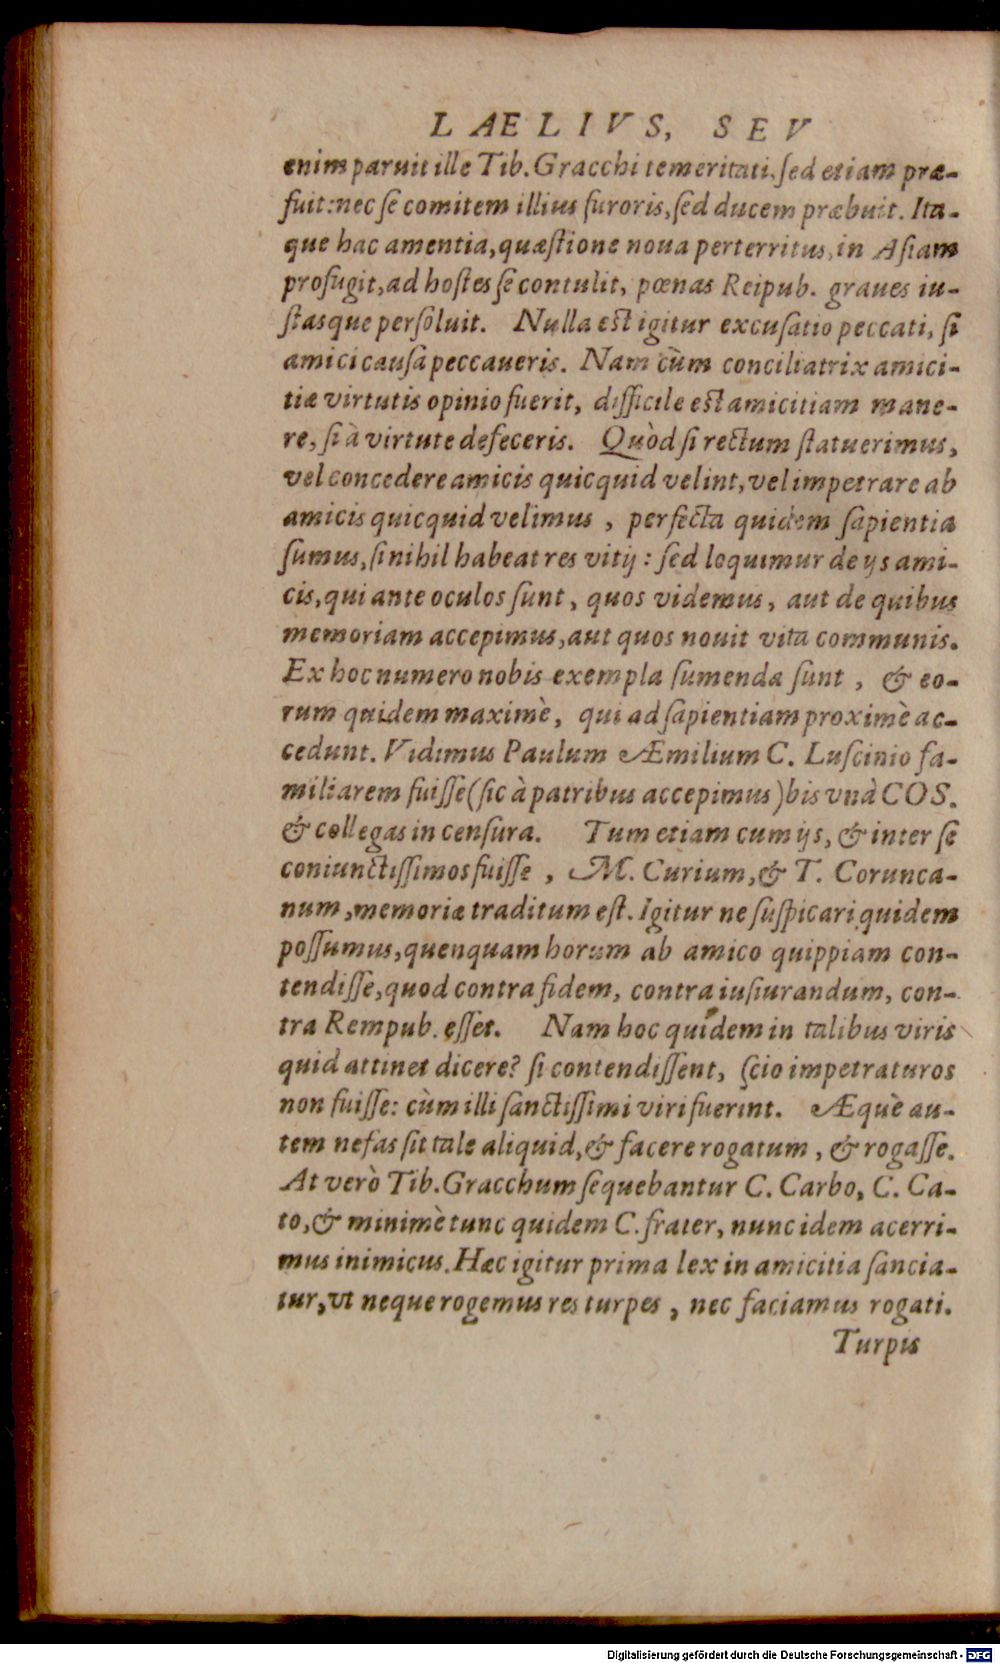 LAELIVS, SEV
enim paruit ille Tib. Gracchi temeritati, sed etiam præ-
fuit: nec se comitem illius furoris, sed ducem præbuit. Ita-
que hac amentia, quæstione noua perterritus, in Asiam
profugit, ad hostes se contulit, pœnas Reipub. graues iu-
stasque persoluit. Nulla est igitur excusatio peccati, si
amici causa peccaueris. Nam cùm conciliatrix amici-
tiæ virtutis opinio fuerit, difficile est amicitiam mane-
re, si à virtute defeceris. Quòd si rectum statuerimus,
vel concedere amicis quicquid velint, vel impetrare ab
amicis quicquid velimus, perfecta quidem sapientia
sumus, si nihil habeat res vitij: sed loquimur de ijs ami-
cis, qui ante oculos sunt, quos videmus, aut de quibus
memoriam accepimus, aut quos nouit vita communis.
Ex hoc numero nobis exempla sumenda sunt, & eo-
rum quidem maximè, qui ad sapientiam proximè ac-
cedunt. Vidimus Paulum Æmilium C. Luscinio fa-
miliarem fuisse (sic à patribus accepimus) bis vnà COS.
& collegas in censura. Tum etiam cum ijs, & inter se
coniunctissimos fuisse, M. Curium, & T. Corunca-
num, memoriæ traditum est. Igitur ne suspicari quidem
possumus, quenquam horum ab amico quippiam con-
tendisse, quod contra fidem, contra iusiurandum, con-
tra Rempub. esset. Nam hoc quidem in talibus viris
quid attinet dicere? si contendissent, scio impetraturos
non fuisse: cùm illi sanctissimi viri fuerint. Æquè au-
tem nefas sit tale aliquid, & facere rogatum, & rogasse.
At verò Tib. Gracchum sequebantur C. Carbo, C. Ca-
to, & minimè tunc quidem C. frater, nunc idem acerri-
mus inimicus. Hæc igitur prima lex in amicitia sancia-
tur, vt neque rogemus res turpes, nec faciamus rogati.
Turpis
Digitalisierung gefördert durch die Deutsche Forschungsgemeinschaft - DFG